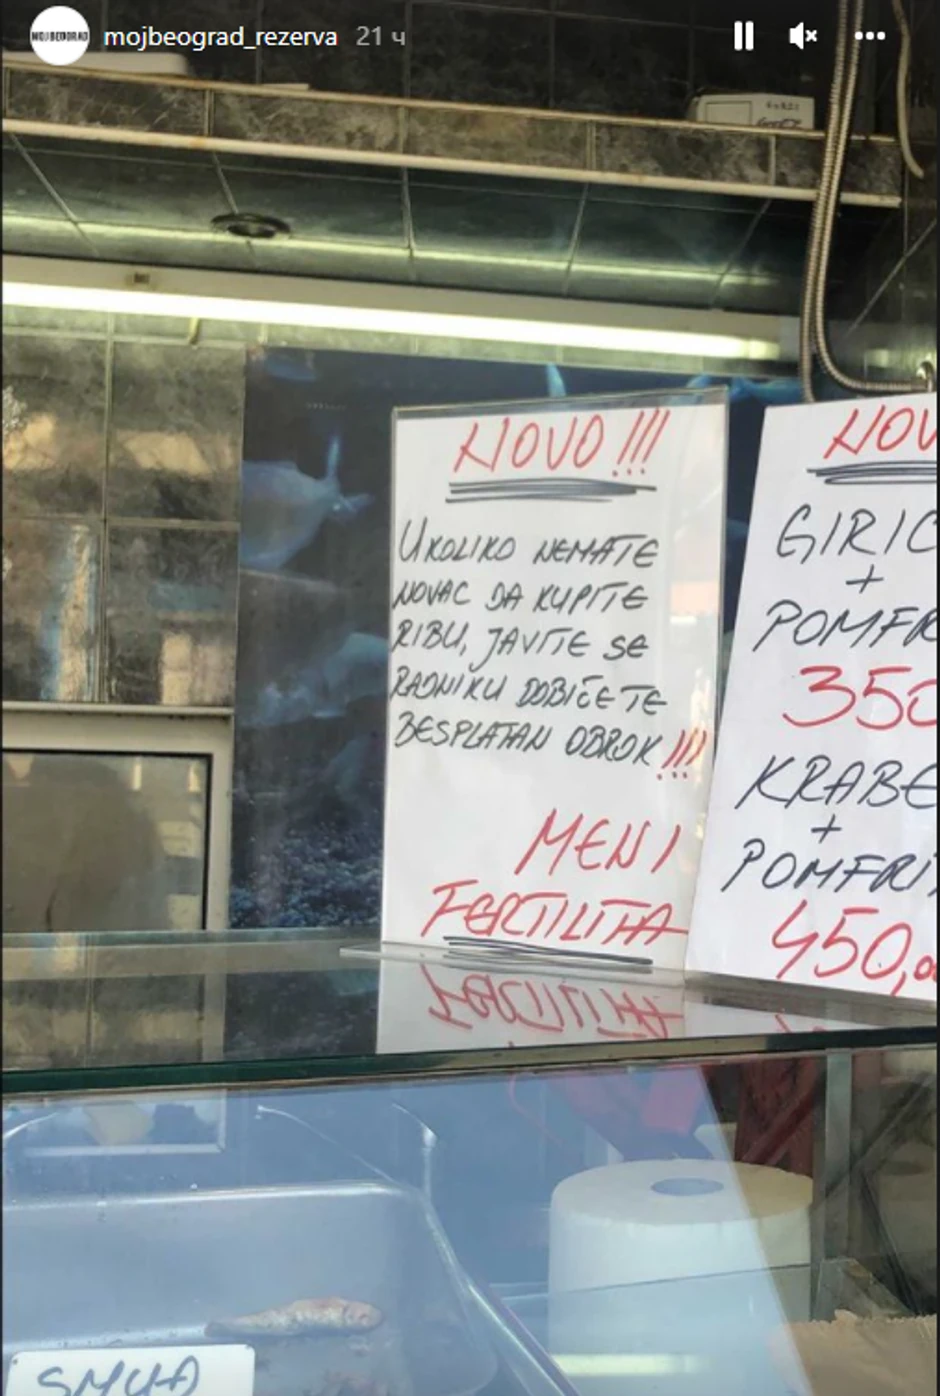 MOJ BEOGRAD
mojbeograd_rezerva 21 ч
NOVO!!!
UKOLIKO NEMATE
NOVAC DA KUPITE
RIBU, JAVITE SE
RADNIKU DOBIĆETE
BESPLATAN OBROK!!!
MENI
FERTILITA
NOV
GIRIC
+
POMFR
350
KRABE
+
POMFRI
450,00
SMUĐ